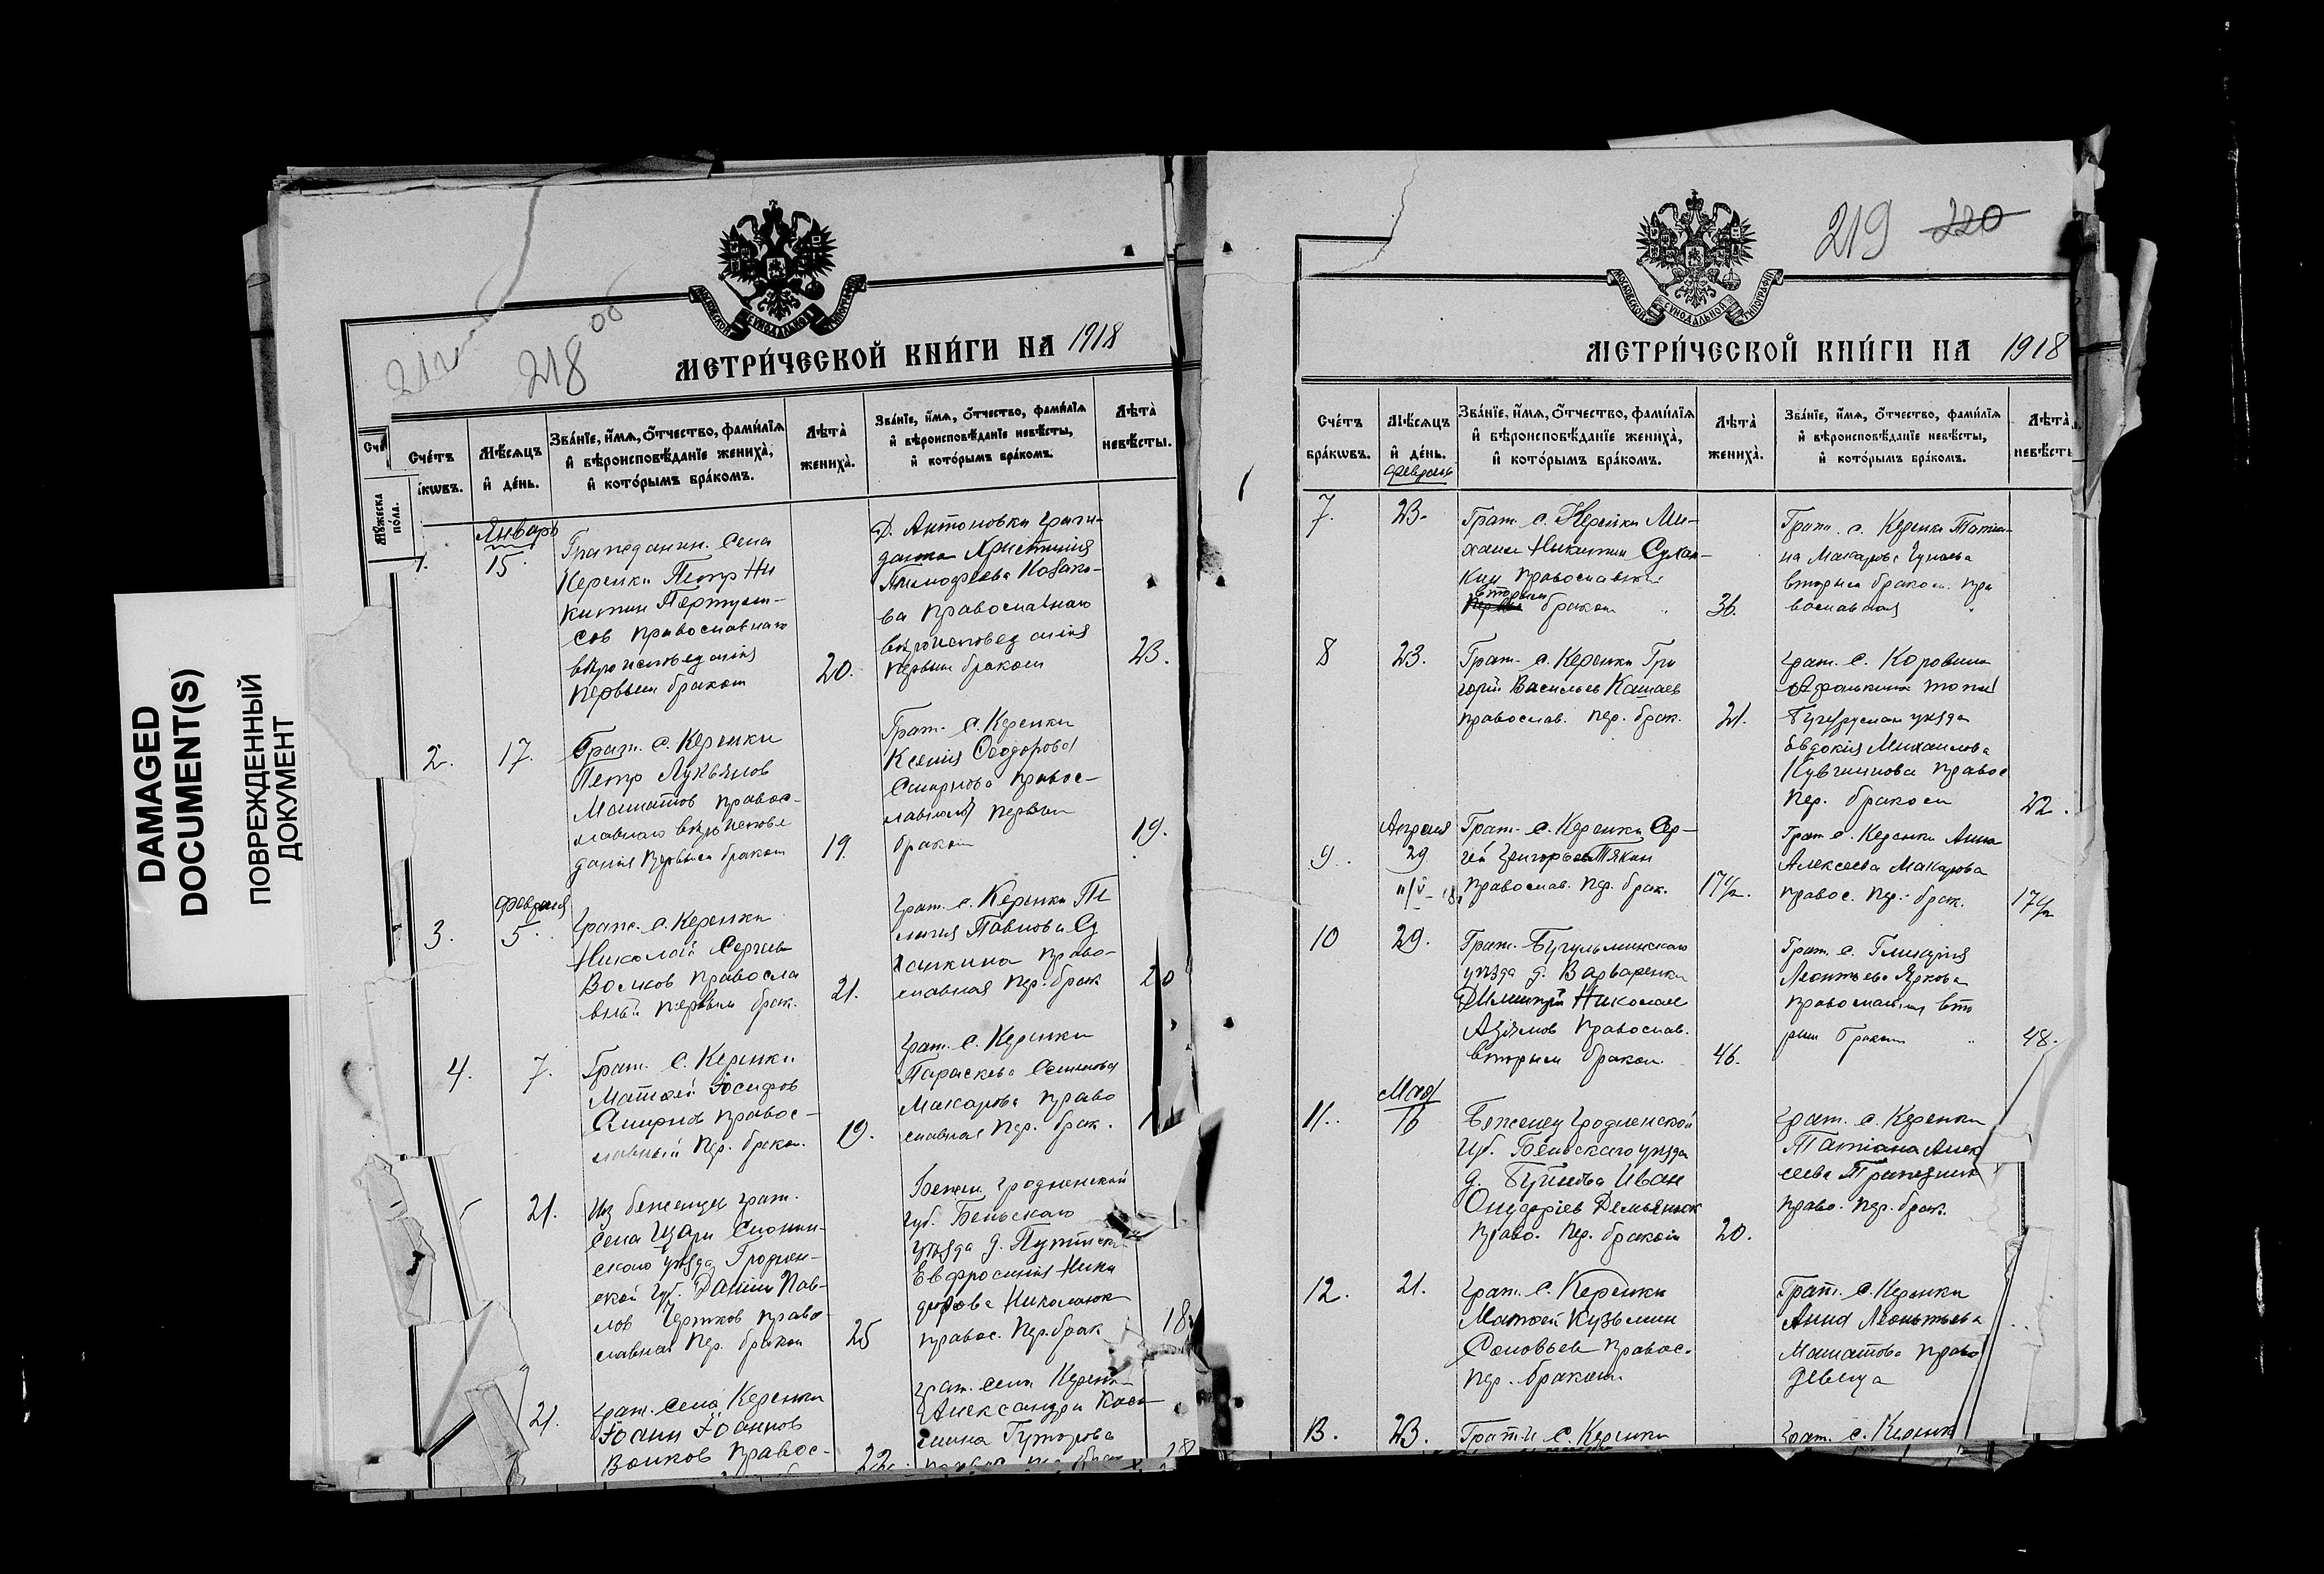 DAMAGED
DOCUMENT(S)
ПОВРЕЖДЕННЫЙ
ДОКУМЕНТ
218 об
МОСКОВСКОЙ СУНОДАЛЬНОЙ ТИПОГРАФІИ
МЕТРИ́ЧЕСКОЙ КНИ́ГИ НА 1918
Счє́тъ
Мѣ́сяцъ
и҆ де́нь.
Зва́нїе, и҆́мѧ, ѻ҆́тчество, фами́лїѧ
и҆ вѣроисповѣ́данїе жениха̀,
и҆ кото́рымъ бра́комъ.
Лѣта̀
жениха̀.
Зва́нїе, и҆́мѧ, ѻ҆́тчество, фами́лїѧ
и҆ вѣроисповѣ́данїе невѣ́сты,
и҆ кото́рымъ бра́комъ.
Лѣта̀
невѣ́сты.
Мꙋ́жеска
по́ла.
1.
Январь
15.
Гражданин. Села
Керенки Петр Ни
китин
сов православнаго
вѣроисповеданія
первым браком
20.
Д. Антоновки гражи-
данка Христинія
Тимофеева Казако-
ва православнаго
вѣроисповеданія
первым браком
23.
2.
17.
Граж. с. Керенки
Петр Лукьянов
Машатов правос-
лавнаго вѣроисповѣ
данія первым браком
19.
Граж. с. Керенки
Ксенія Ѳеодорова
Смирнова правос-
лавная первым
браком
19.
3.
Февраля
5.
Граж. с. Керенки
Николай Сергиев
Волков правосла
вный первым брак.
21.
Граж. с. Керенки Пе
лагия Павлова Су
ханкина право-
славная пер. брак
20
4.
7.
Граж. с. Керенки
Матѳей Іосифов
Смирнов правос-
лавный пер. браком.
19.
Граж. с. Керенки
Параскева Семенова
Макарова право
славная пер. брак.
21.
Из беженцев граж.
Села Слоним-
скаго уѣзда Гроднен-
ской губ. Данiил Пав-
лов Чертков право
славнаго пер. браком
25
Бежен. Гродненской
губ. Бельскаго
уѣзда д.
Евфросинія Ники
форова Николаюк
правос. пер. брак
18.
21.
Граж. села Керенки
Іоанн Іоаннов
Волков правос-
22.
Граж. села Керенк
Александра Козь
мина Гуторова
219 220
МОСКОВСКОЙ СУНОДАЛЬНОЙ ТИПОГРАФІИ
МЕТРИ́ЧЕСКОЙ КНИ́ГИ НА 1918
Счє́тъ
бра́кѡвъ.
Мѣ́сяцъ
и҆ де́нь.
Февраль
Зва́нїе, и҆́мѧ, ѻ҆́тчество, фами́лїѧ
и҆ вѣроисповѣ́данїе жениха̀,
и҆ кото́рымъ бра́комъ.
Лѣта̀
жениха̀.
Зва́нїе, и҆́мѧ, ѻ҆́тчество, фами́лїѧ
и҆ вѣроисповѣ́данїе невѣ́сты,
и҆ кото́рымъ бра́комъ.
Лѣта̀
невѣ́сты
7.
23.
Граж. с. Керенки Ми-
хаил Никитин Сухан-
кин православный
вторым
браком
36.
Граж. с. Керенки Татиа-
на Макарова Гунаева
вторым браком. пра
вославная
8
23.
Граж. с. Керенки Гри
горий Васильев Кашаев
православ. пер. брак.
21.
Граж. с. Коровина
Афонькина тожъ
Бугуруслан уѣзда
Евдокія Михаилова
Кувшинова правос
пер. браком
22.
9.
Апреля
29
Граж. с. Керенки Сер-
гей Григорьев Тякин
православ. пер. брак.
17 1/2.
Граж с. Керенки Анна
Алексеева Макарова
правос. пер. брак.
17 1/2
10
29.
Граж. Бугульминскаго
уѣзда д. Варваренка
Димитрій Николаев
православ.
вторым браком
46.
Граж. с. Гликерія
Леонтьева Яркова
православная вто
рым браком
48.
11.
Мая
16
Беженец Гродненской
губ. Бельскаго уѣзда
д. Иван
Онуфріев Демьянюк
право. пер. браком
20.
Граж. с. Керенки
Татіана Алек
сеева
право. пер. брак.
12.
21.
Граж. с. Керенки
Матѳей Кузьмин
Соловьев правос.
пер. браком
Граж. с. Керенки
Анна Леонтьева
Машатова право
девица
13.
23.
Граж. с. Керенки
Граж. с. Керенк